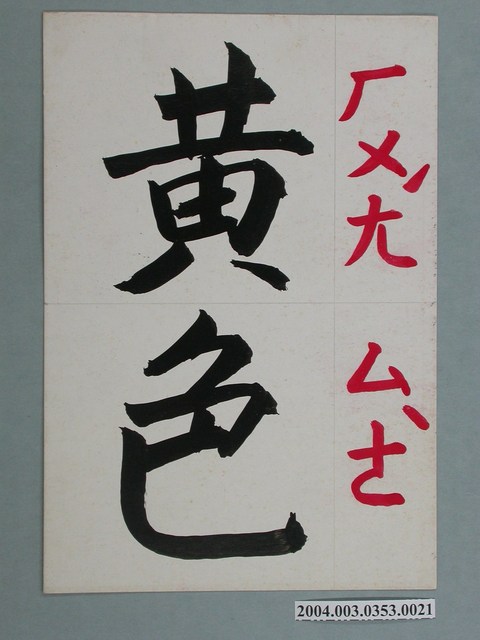 黃色
ㄏㄨㄤˊ
ㄙㄜˋ
2004.003.0353.0021